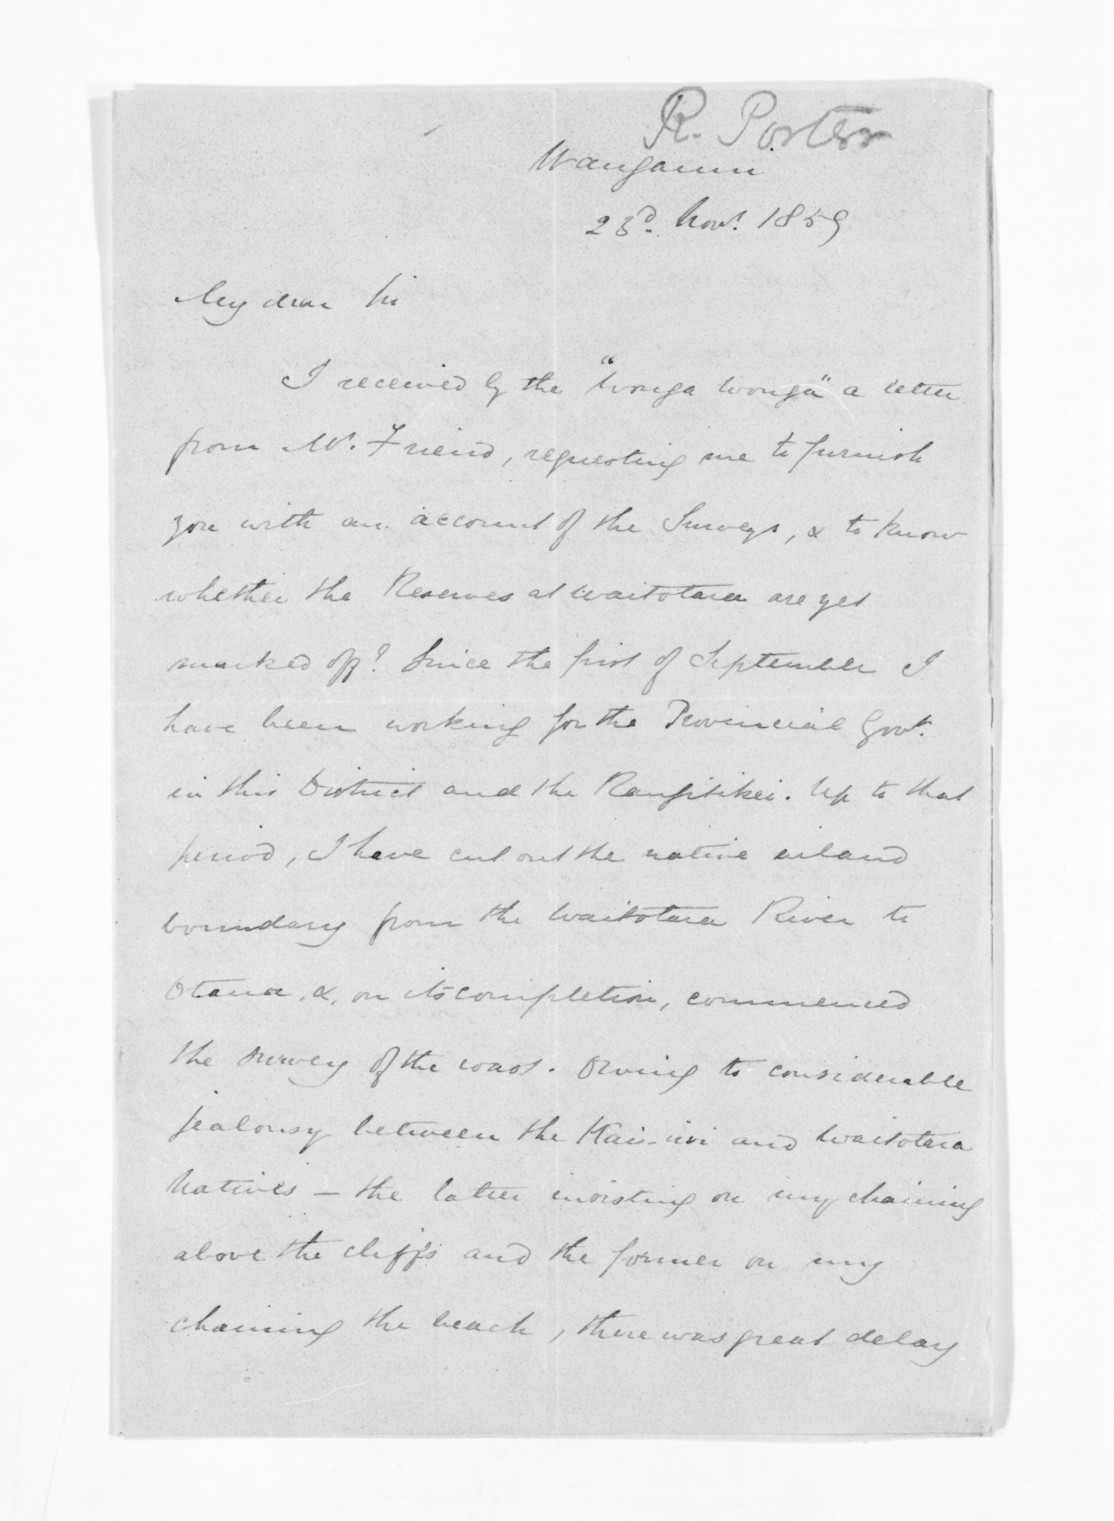 R. Porter
Wanganui
23d. Novr. 1859
My dear Sir
I received by the "Wonga Wonga" a letter
from Mr. Friend, requesting me to furnish
you with an account of the Surveys, & to know
whether the Reserves at Waitotara are yet
marked off? Since the first of September I
have been working for the Provincial Govt.
in this District and the Rangitikei. Up to that
period, I have cut out the native inland
boundary from the Waitotara River to
Otaua, &, on its completion, commenced
the survey of the coast. Owing to considerable
jealousy between the Kai-iwi and Waitotara
Natives – the latter insisting on my chaining
above the cliffs and the former on my
chaining the beach, there was great delay